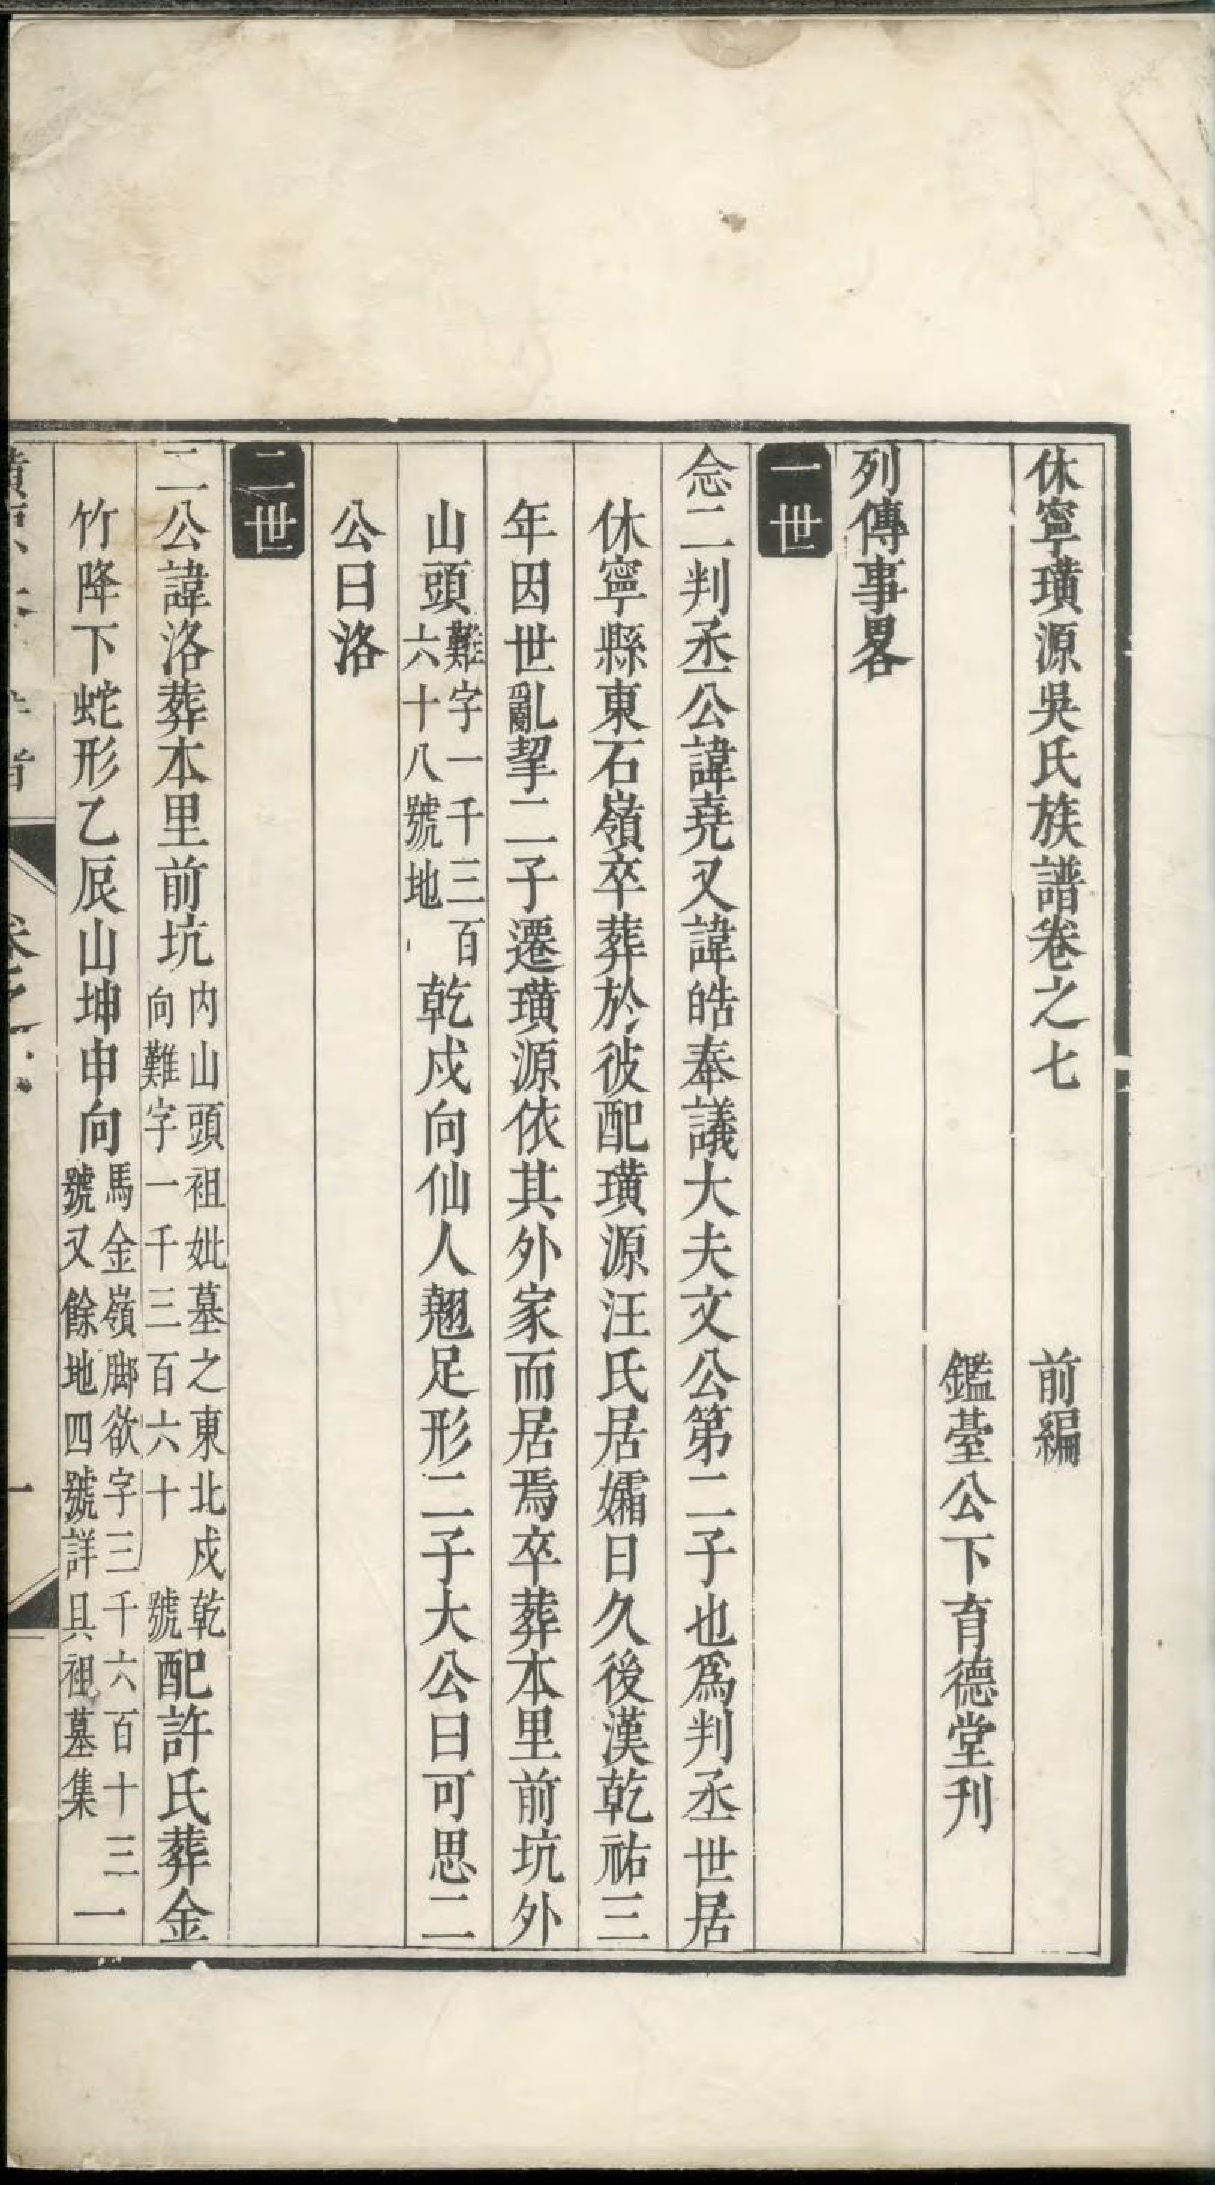 休寧璜源吳氏族譜卷之七　前編
鑑臺公下育德堂刊
列傳事畧
一世
念二判丞公諱堯又諱皓奉議大夫文公第二子也爲判丞世居
休寧縣東石嶺卒葬於彼配璜源汪氏居孀日久後漢乾祐三
年因世亂挈二子遷璜源依其外家而居焉卒葬本里前坑外
山頭難字一千三百六十八號地乾戍向仙人翹足形二子大公曰可思二
公曰洛
二世
二公諱洛葬本里前坑内山頭祖妣墓之東北戍乾向難字一千三百六十號配許氏葬金
竹降下蛇形乙辰山坤申向馬金嶺脚欲字三千六百十三號又餘地四號詳具祖墓集一